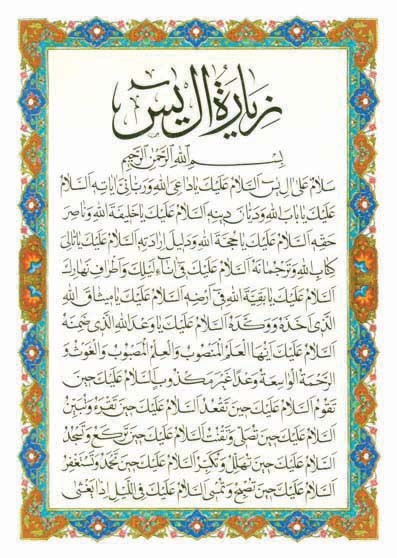 زيارة آل يس
بِسْمِ اللهِ الرَّحْمٰنِ الرَّحيمِ
سَلامٌ عَلى آلِ يس اَلسَّلامُ عَلَيْكَ يا داعِيَ اللهِ وَرَبّانِيَّ آياتِهِ اَلسَّلامُ
عَلَيْكَ يا بابَ اللهِ وَدَيّانَ دينِهِ اَلسَّلامُ عَلَيْكَ يا خَليفَةَ اللهِ وَناصِرَ
حَقِّهِ اَلسَّلامُ عَلَيْكَ يا حُجَّةَ اللهِ وَدَليلَ اِرادَتِهِ اَلسَّلامُ عَلَيْكَ يا تالِيَ
كِتابِ اللهِ وَتَرْجُمانَهُ اَلسَّلامُ عَلَيْكَ في آناءِ لَيْلِكَ وَاَطْرافِ نَهارِكَ
اَلسَّلامُ عَلَيْكَ يا بَقِيَّةَ اللهِ في اَرْضِهِ اَلسَّلامُ عَلَيْكَ يا ميثاقَ اللهِ
الَّذي اَخَذَهُ وَوَكَّدَهُ اَلسَّلامُ عَلَيْكَ يا وَعْدَ اللهِ الَّذي ضَمِنَهُ
اَلسَّلامُ عَلَيْكَ اَيُّهَا الْعَلَمُ الْمَنْصُوبُ وَالْعِلْمُ الْمَصْبُوبُ وَالْغَوْثُ وَ
الرَّحْمَةُ الْواسِعَةُ وَعْداً غَيْرَ مَكْذُوبٍ اَلسَّلامُ عَلَيْكَ حينَ
تَقُومُ اَلسَّلامُ عَلَيْكَ حينَ تَقْعُدُ اَلسَّلامُ عَلَيْكَ حينَ تَقْرَءُ وَتُبَيِّنُ
اَلسَّلامُ عَلَيْكَ حينَ تُصَلّي وَتَقْنُتُ اَلسَّلامُ عَلَيْكَ حينَ تَرْكَعُ وَتَسْجُدُ
اَلسَّلامُ عَلَيْكَ حينَ تُهَلِّلُ وَتُكَبِّرُ اَلسَّلامُ عَلَيْكَ حينَ تَحْمَدُ وَتَسْتَغْفِرُ
اَلسَّلامُ عَلَيْكَ حينَ تُصْبِحُ وَتُمْسي اَلسَّلامُ عَلَيْكَ فِي اللَّيْلِ اِذا يَغْشى